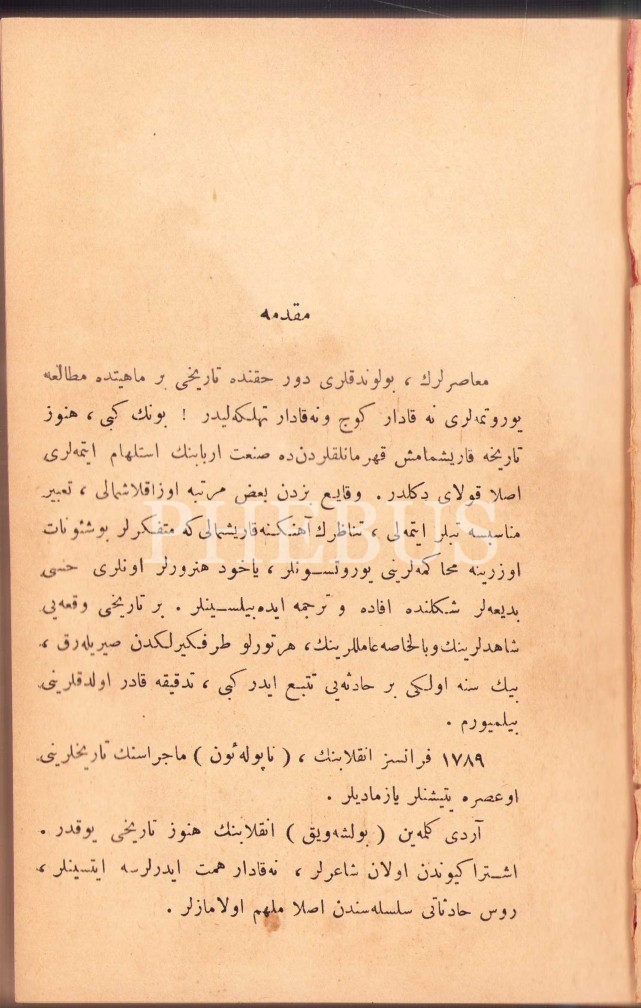 مقدمه
معاصرلرك ، بولوندقلری دور حقنده تاریخی بر ماهیتده مطالعه
یوروتمه‌لری نه قادار كوج ونه‌قادار تهلكه‌لیدر ! بونك كبی ، هنوز
تاریخه قاریشمامش قهرمانلقلردن‌ده صنعت اربابنك استلهام ایتمه‌لری
اصلا قولای دكلدر . وقایع بزدن بعض مرتبه اوزاقلاشمالی ، تعبیر
مناسبسه تبلر ایتمه‌لی ، تناظرك آهنكنه‌قاریشمالی‌كه متفكرلر بوشئونات
اوزرینه محاكمه‌لرینی یوروتسـونلر ، یاخود هنرورلر اونلری حسی
بدیعه‌لر شكلنده افاده و ترجمه ایده‌بیلسـینلر . بر تاریخی وقعه‌یی
شاهدلرینك وبالخاصه‌عاملل‍رینك، هرتورلو طرفكیرلكدن صیریله‌رق ،
بیك سنه اولكی بر حادثه‌یی تتبع ایدر كبی ، تدقیقه قادر اولدقلرینی
بیلمیورم .
١٧٨٩ فرانسز انقلابنك ، ( ناپوله‌ئون ) ماجراسنك تاریخلرینی
اوعصره یتیشنلر یازمادیلر .
آردی كلمه‌ین ( بولشه‌ویق ) انقلابنك هنوز تاریخی یوقدر .
اشـتراكیوندن اولان شاعرلر ، نه‌قادار همت ایدرلرسه ایتسینلر ،
روس حادثاتی سلسله‌سندن اصلا ملهم اولامازلر .
PHEBUS